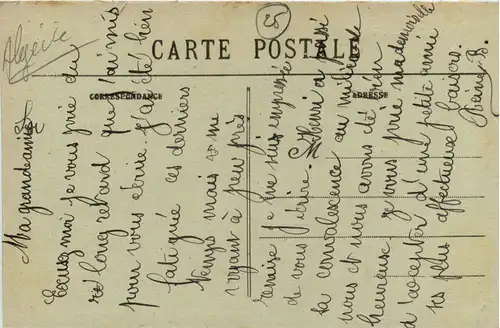 Algérie
CARTE POSTALE
CORRESPONDANCE
ADRESSE
Ma grande amie
Excusez moi je vous prie du
si long retard que j'ai mis
pour vous écrire. J'ai été bien
fatiguée ces derniers
temps mais me
voyant à peu près
remise je me suis empressée
de vous écrire. M Henri a passé
sa convalescence au milieu de
nous et nous avons été bien
heureux je vous prie mademoiselle
d'accepter d'une petite amie
ses plus affectueux baisers.